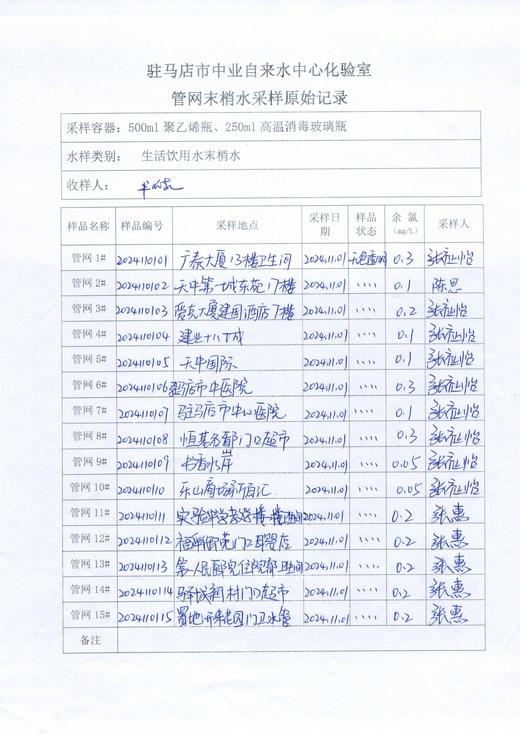 驻马店市中业自来水中心化验室
管网末梢水采样原始记录
采样容器：500ml 聚乙烯瓶、250ml 高温消毒玻璃瓶
水样类别： 生活饮用水末梢水
收样人：
样品名称 样品编号 采样地点 采样日期 样品状态 余氯(mg/L) 采样人
管网 1# 2024110101 广泰大厦13楼卫生间 2024.11.01 无色透明 0.3
管网 2# 2024110102 天中第一城东苑门楼 2024.11.01 〃〃 0.1 陈思
管网 3# 2024110103 大厦建国酒店1楼 2024.11.01 〃〃 0.2
管网 4# 2024110104 建业十八城 2024.11.01 〃〃 0.1
管网 5# 2024110105 天中国际 2024.11.01 〃〃 0.1
管网 6# 2024110106 驻马店市中医院 2024.11.01 〃〃 0.3
管网 7# 2024110107 驻马店市中心医院 2024.11.01 〃〃 0.1
管网 8# 2024110108 恒基名都门口超市 2024.11.01 〃〃 0.3
管网 9# 2024110109 书香水岸 2024.11.01 〃〃 0.05
管网 10# 2024110110 乐山商场新百汇 2024.11.01 〃〃 0.05
管网 11# 2024110111 实验中学 2024.11.01 〃〃 0.2 张惠
管网 12# 2024110112 2024.11.01 〃〃 0.2 张惠
管网 13# 2024110113 第一人民医院住院部卫生间 2024.11.01 〃〃 0.2 张惠
管网 14# 2024110114 驿城新村门口超市 2024.11.01 〃〃 0.2 张惠
管网 15# 2024110115 花园门卫水管 2024.11.01 〃〃 0.2 张惠
备注